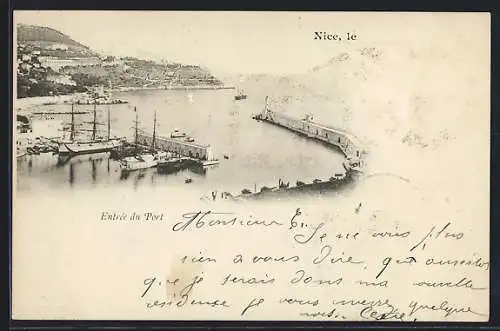 Nice, le
Entrée du Port
Monsieur E, Je ne vous plus
rien à vous dire, qu'aussitôt
que je serais dans ma nouvelle
résidence je vous quelque